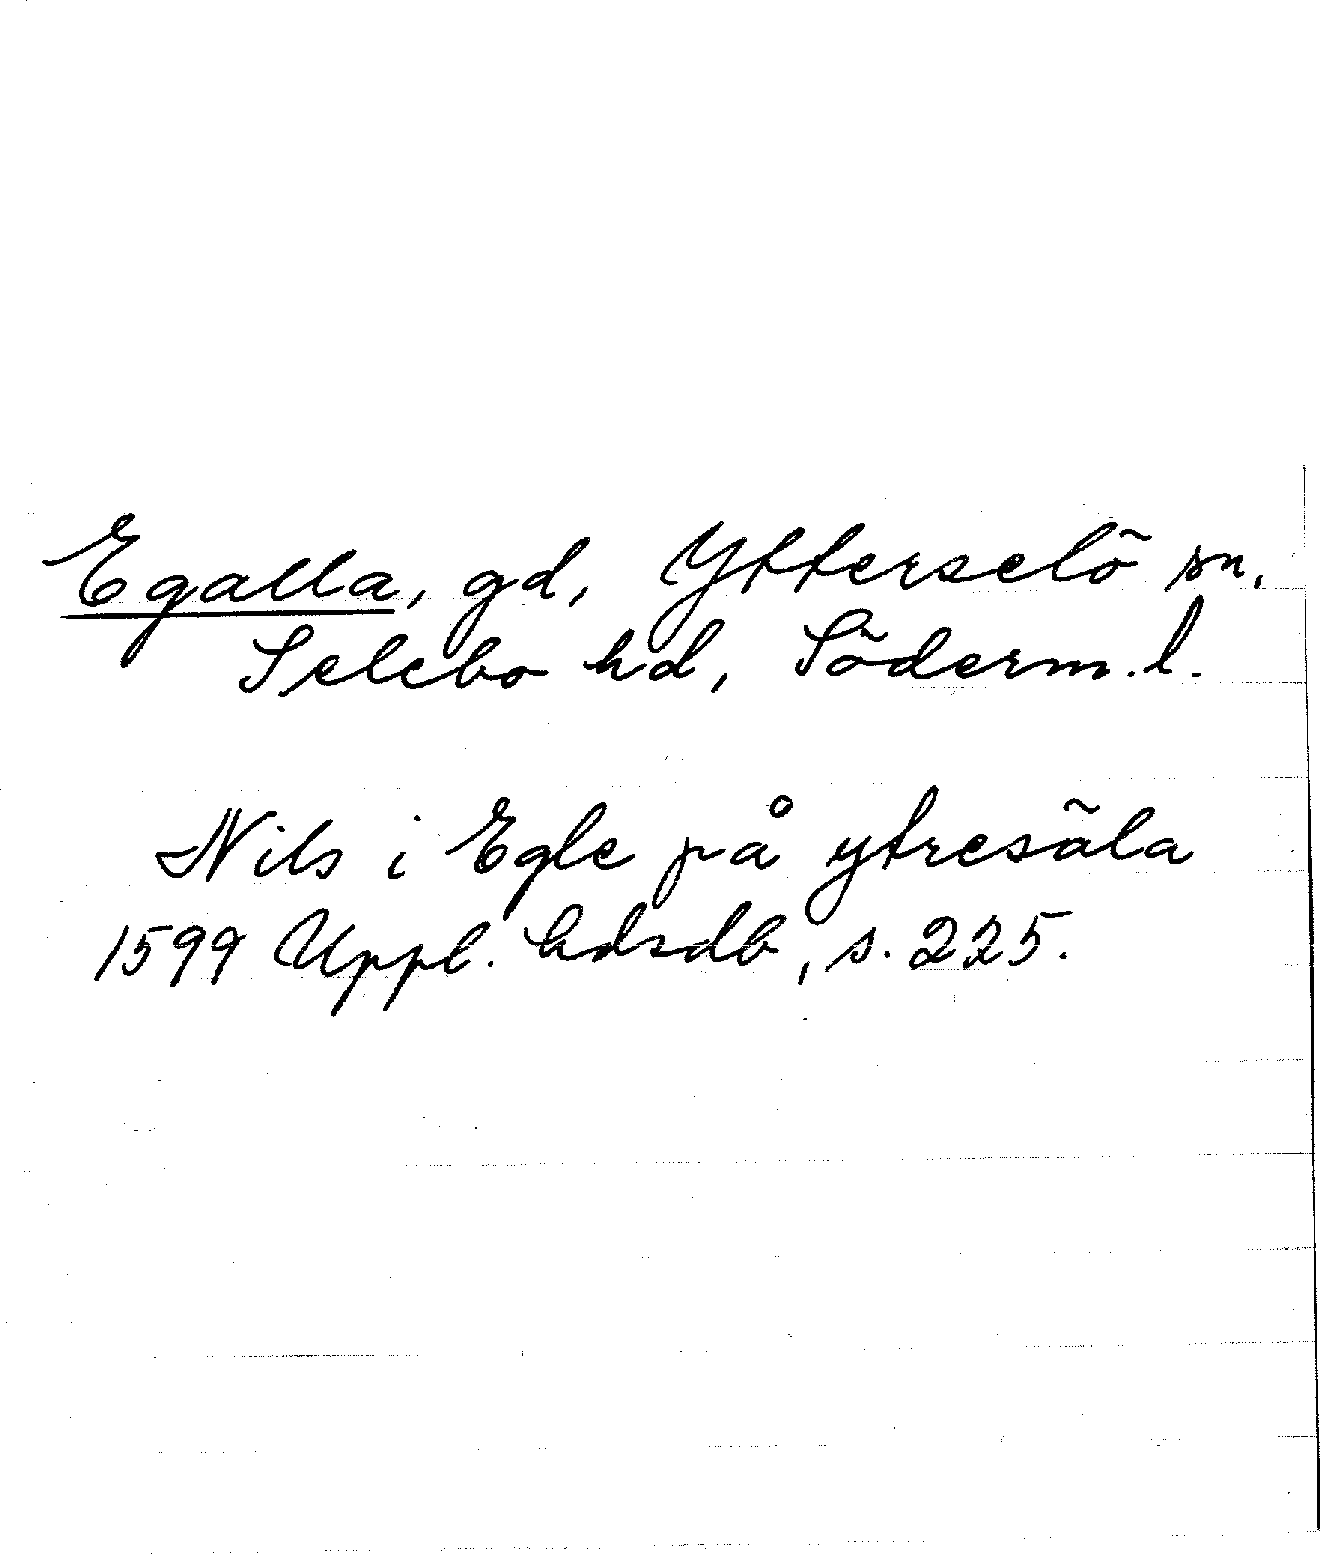 Egalla, gd, Ytterselö sn,
Selebo hd, Söderm.l.
Nils i Egle på ytresäla
1599 Uppl. hdsdb, s. 225.